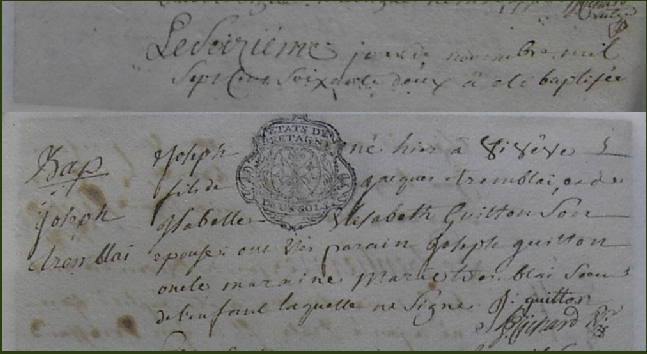 Le Seizième jour de novembre mil
Sept Cent Soixante deux a été baptisée
Bap
Joseph
tremblai
ETATS DE
BRETAGNE
DEUX SOLS
Joseph né hier à
fils de Jacques tremblai, et de
Isabelle Elisabeth Guitton Son
epouse; ont été parain Joseph guitton
oncle maraine Marie tremblai Soeur
de l'enfant laquelle ne signe J: guitton
Richard